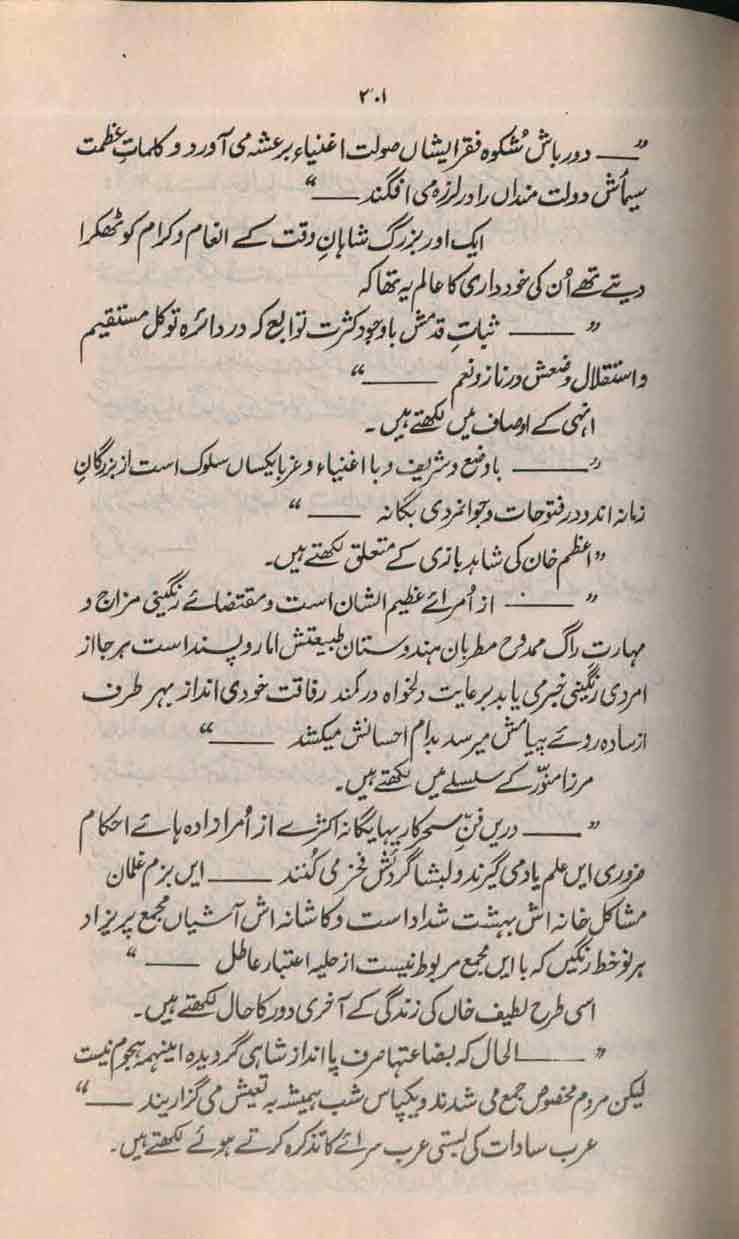 ۲۰۱
"—— دور باش شکوہ فقر ایشاں صولت اغنیاء برعشہ می آورد و کلماتِ عظمت
سیماُش دولت منداں را در لرزہ می افگند ——"
ایک اور بزرگ شاہانِ وقت کے انعام وکرام کو ٹھکرا
دیتے تھے اُن کی خود داری کا عالم یہ تھا کہ
"—— ثباتِ قدمش باوجود کثرت توابع کہ در دائرہ توکل مستقیم
و استقلال وضعش در ناز و نعم ——"
انہی کے اوصاف میں لکھتے ہیں۔
"—— با وضع و شریف و با اغنیاء و غربا یکساں سلوک است از بزرگانِ
زمانہ اند و در فتوحات و جوانمردی یگانہ ——"
"اعظم خان کی شاہد بازی کے متعلق لکھتے ہیں۔
"—— از اُمرائے عظیم الشان است و مقتضائے رنگینی مزاج و
مہارت راگ ممدوح مطربان ہندوستان طبیعتش امارو پسند است ہر جا از
امردی رنگینی خبر می یابد برعایت دلخواہ در کمند رفاقت خود می انداز بہر طرف
از سادہ روئے پیامش میرسد بدام احسانش میکشد ——"
مرزا منوّر کے سلسلے میں لکھتے ہیں۔
"—— دریں فنِ سحر کاریہا یگانہ اکثرے از اُمرازادہ ہائے احکام
ضروری ایں علم یاد می گیرند و بشاگردئش فخر می کُنند —— ایں بزم غلمان
مشاکل خانہ اش بہشت شداد است و کاشانہ اش آشیاں مجمع پریزاد
ہر نوخط رنگیں کہ با ایں مجمع مربوط نیست از حلیہ اعتبار عاطل ——"
اسی طرح لطیف خاں کی زندگی کے آخری دور کا حال لکھتے ہیں۔
"—— الحال کہ بضاعتہا صرف پا انداز شاہی گردیدہ اینہمہ ہجوم نیست
لیکن مردم مخصوص جمع می شدند و یکپاس شب ہمیشہ بہ تعیش می گزاریند ——"
عرب سادات کی بستی عرب سرائے کا تذکرہ کرتے ہوئے لکھتے ہیں۔